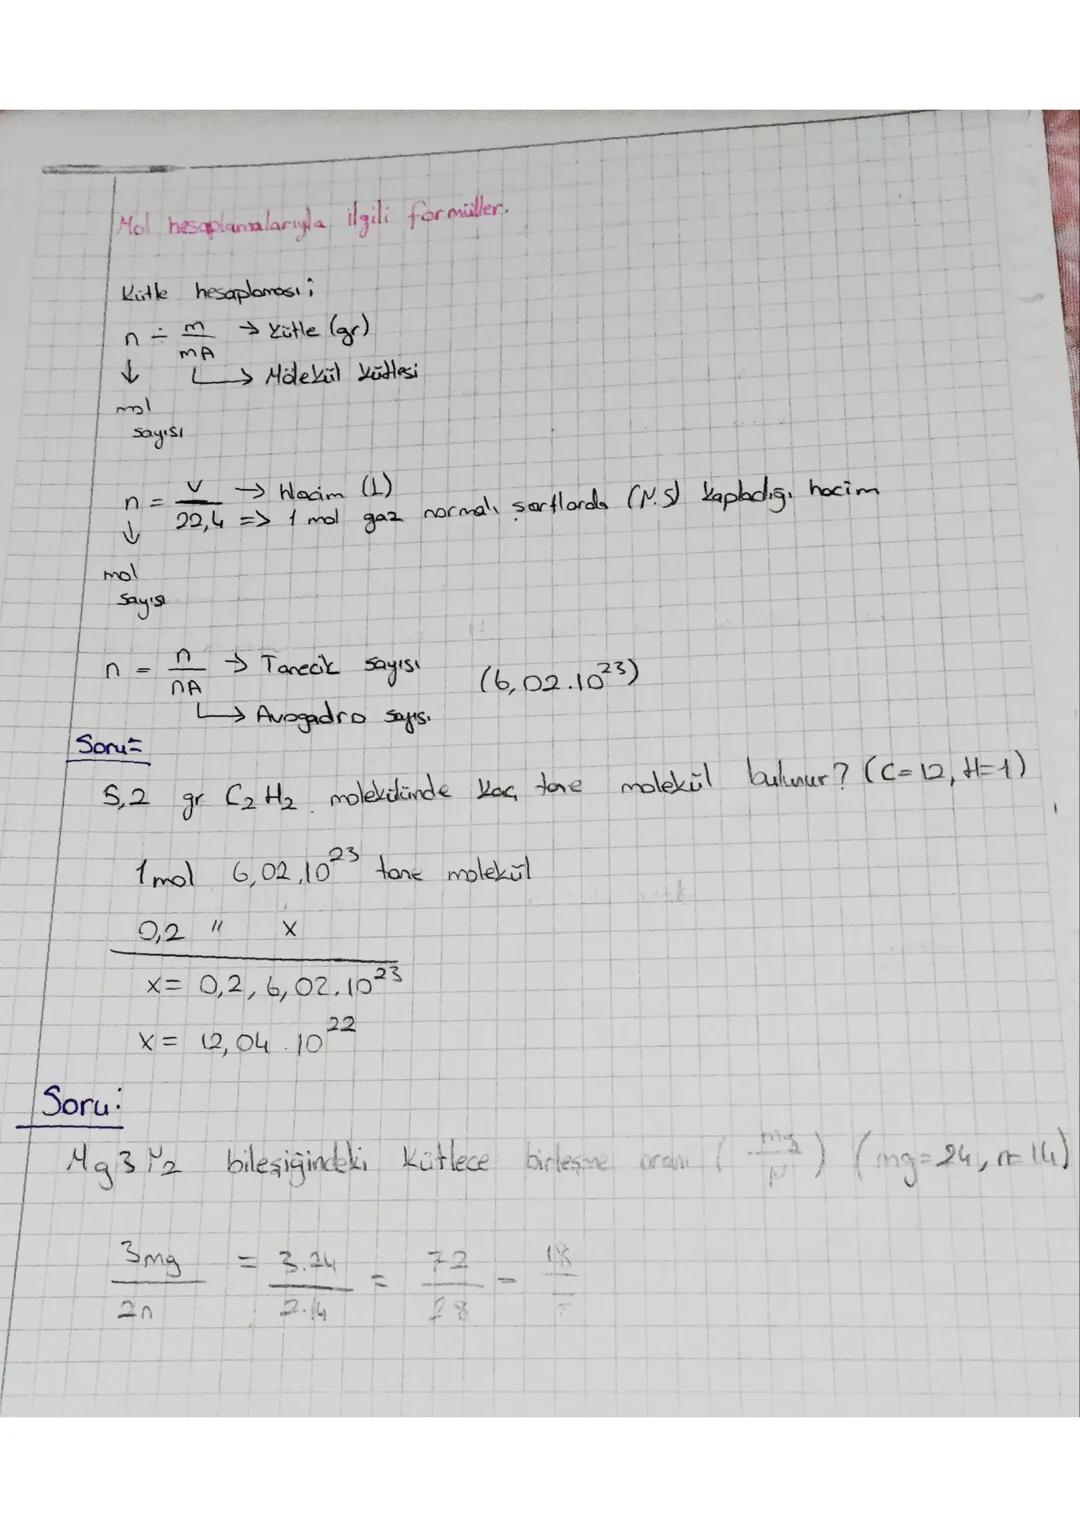 Mol hesaplamalarıyla ilgili formüller.
Kütle hesaplaması;
n = m → Kütle (gr)
mA
↓ → Molekül kütlesi
mol
sayısı
n = V → Hacim (L)
22,4 => 1 mol gaz normal şartlarda (N.S) kapladığı hacim
↓
mol
sayısı
n = n → Tanecik sayısı (6,02.10²³)
nA
→ Avogadro sayısı
Soru=
5,2 gr C₂H₂ molekülünde kaç tane molekül bulunur? (C=12, H=1)
1 mol 6,02.10²³ tane molekül
0,2 " x
x = 0,2, 6,02.10²³
x = 12,04.10²²
Soru:
Mg3N2 bileşiğindeki kütlece birleşme oranı (mg/N) (mg=24, n=14)
3mg = 3.24 = 72 = 18
2n 2.14 28 7